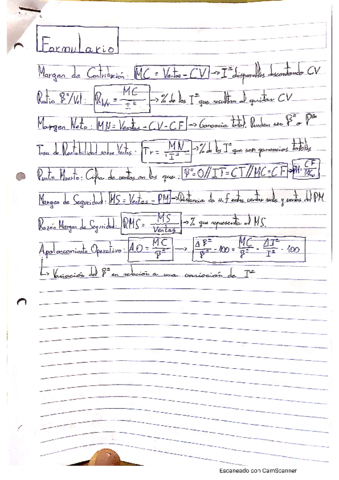 Formulario
Margen de Contribución: MC = Ventas - CV → Iº disponibles descontando CV
Ratio Bº/Vol: = MC / Iº → % de los Iº que resultan al quitar CV
Margen Neto: MN = Ventas - CV - CF → Ganancia total. Pueden ser Bº o Pª
Tasa de Rentabilidad sobre Ventas: Tr = MN / Iº → % de los Iº que son ganancias totales
Punto Muerto: Cifra de ventas en las que: Bº = 0 // IT = CT // MC = CF → PM = CF /
Margen de Seguridad: MS = Ventas - PM → Distancia de entre ventas reales y ventas del PM
Razón Margen de Seguridad: RMS = MS / Ventas → % que representa el MS.
Apalancamiento Operativo: AO = MC / Bº → ΔBº / Bº · 100 = MC / Bº · ΔIº / Iº · 100
↳ Variación del Bº en relación a una variación de Iº
Escaneado con CamScanner